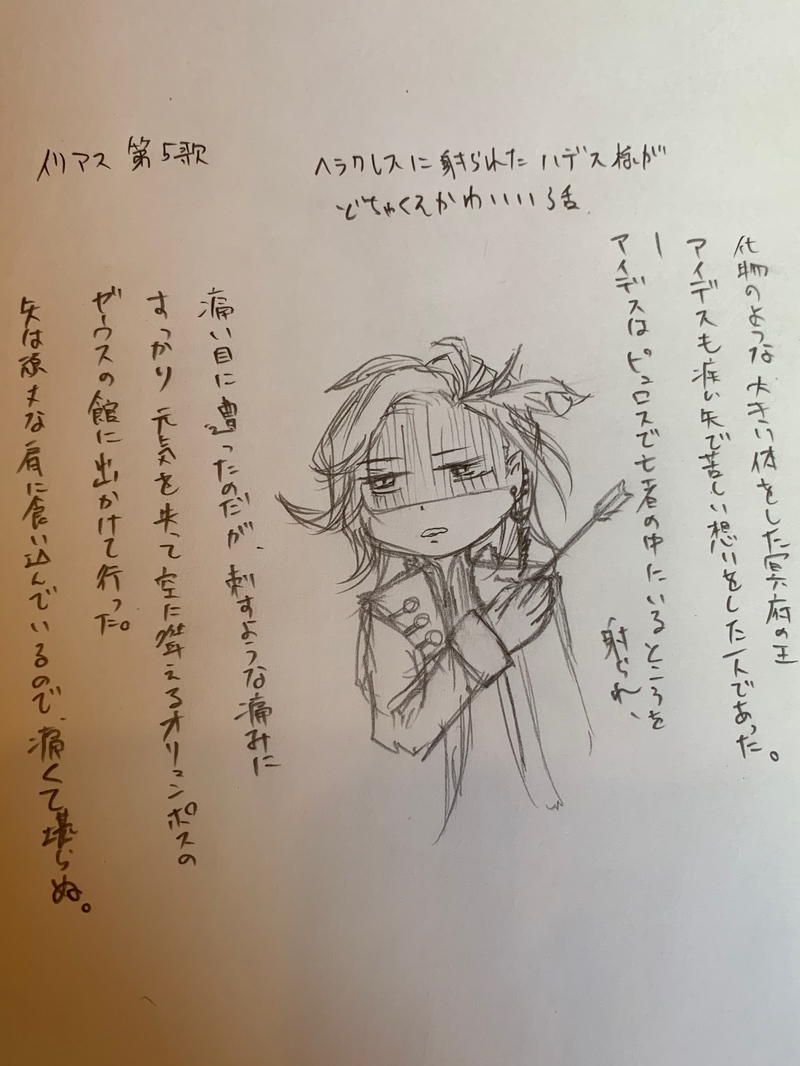 イリアス 第5歌
ヘラクレスに射られたハデス様が
どちゃくそかわいい話
化物のような大きい体をした冥府の王
アイデスも疾い矢で苦しい想いをした一人であった。
ー
アイデスはピュロスで亡者の中にいるところを
射られ、
痛い目に遭ったのだが、刺すような痛みに
すっかり元気を失って空に聳えるオリュンポスの
ゼウスの館に出かけて行った。
矢は頑丈な肩に食い込んでいるので、痛くて堪らぬ。